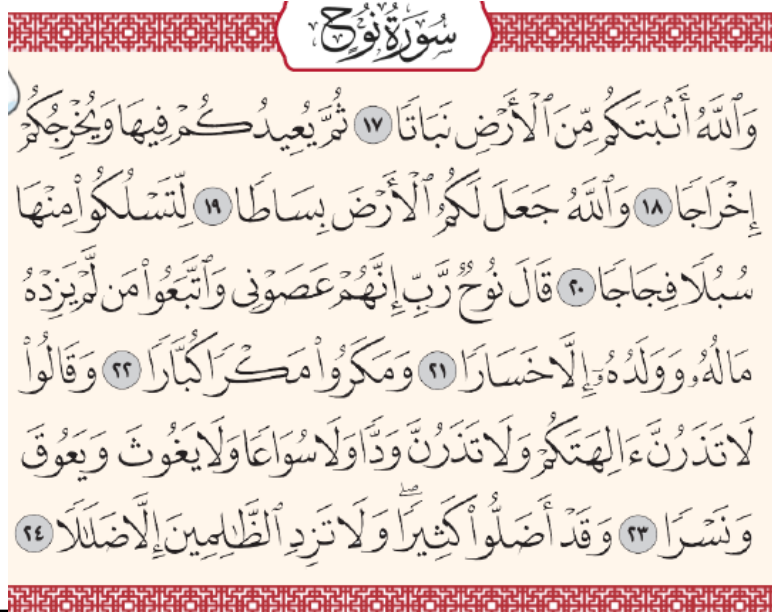 سُورَةُ نُوحٍ
وَٱللَّهُ أَنۢبَتَكُم مِّنَ ٱلْأَرْضِ نَبَاتًا ١٧ ثُمَّ يُعِيدُكُمْ فِيهَا وَيُخْرِجُكُمْ
إِخْرَاجًا ١٨ وَٱللَّهُ جَعَلَ لَكُمُ ٱلْأَرْضَ بِسَاطًا ١٩ لِّتَسْلُكُوا۟ مِنْهَا
سُبُلًا فِجَاجًا ٢٠ قَالَ نُوحٌ رَّبِّ إِنَّهُمْ عَصَوْنِى وَٱتَّبَعُوا۟ مَن لَّمْ يَزِدْهُ
مَالُهُۥ وَوَلَدُهُۥٓ إِلَّا خَسَارًا ٢١ وَمَكَرُوا۟ مَكْرًا كُبَّارًا ٢٢ وَقَالُوا۟
لَا تَذَرُنَّ ءَالِهَتَكُمْ وَلَا تَذَرُنَّ وَدًّا وَلَا سُوَاعًا وَلَا يَغُوثَ وَيَعُوقَ
وَنَسْرًا ٢٣ وَقَدْ أَضَلُّوا۟ كَثِيرًاۖ وَلَا تَزِدِ ٱلظَّـٰلِمِينَ إِلَّا ضَلَـٰلًا ٢٤